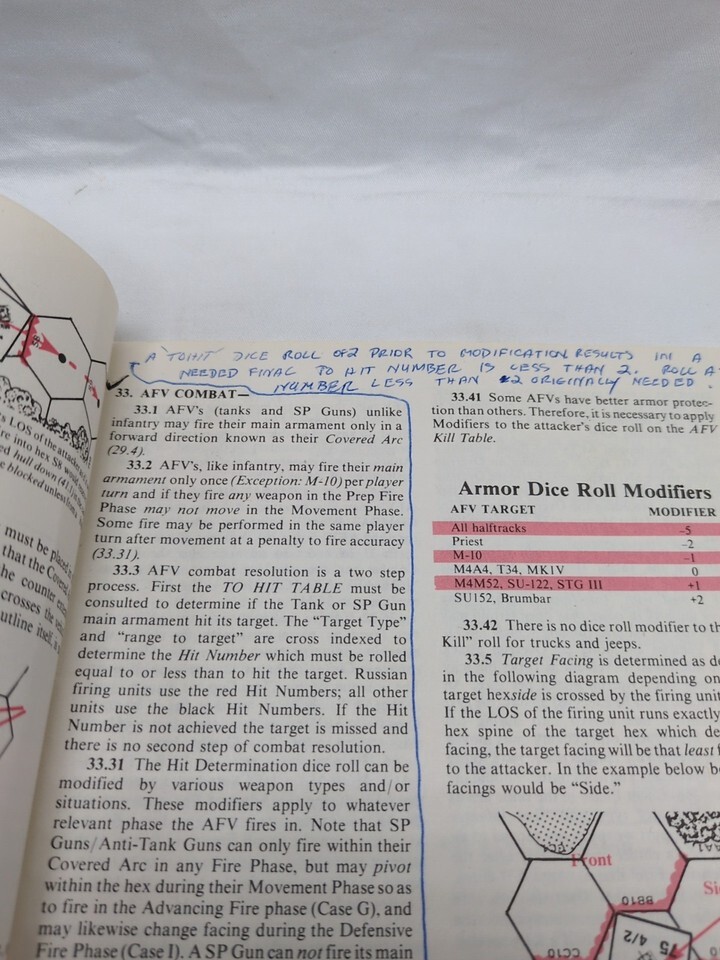 A TO HIT DICE ROLL OF 2 PRIOR TO MODIFICATION RESULTS IN A
NEEDED FINAL TO HIT NUMBER IS LESS THAN 2. ROLL A
NUMBER LESS THAN 2 ORIGINALLY NEEDED.
33. AFV COMBAT—
33.1 AFV's (tanks and SP Guns) unlike
infantry may fire their main armament only in a
forward direction known as their Covered Arc
(29.4).
33.2 AFV's, like infantry, may fire their main
armament only once (Exception: M-10) per player
turn and if they fire any weapon in the Prep Fire
Phase may not move in the Movement Phase.
Some fire may be performed in the same player
turn after movement at a penalty to fire accuracy
(33.31).
33.3 AFV combat resolution is a two step
process. First the TO HIT TABLE must be
consulted to determine if the Tank or SP Gun
main armament hit its target. The “Target Type”
and “range to target” are cross indexed to
determine the Hit Number which must be rolled
equal to or less than to hit the target. Russian
firing units use the red Hit Numbers; all other
units use the black Hit Numbers. If the Hit
Number is not achieved the target is missed and
there is no second step of combat resolution.
33.31 The Hit Determination dice roll can be
modified by various weapon types and/or
situations. These modifiers apply to whatever
relevant phase the AFV fires in. Note that SP
Guns/Anti-Tank Guns can only fire within their
Covered Arc in any Fire Phase, but may pivot
within the hex during their Movement Phase so as
to fire in the Advancing Fire phase (Case G), and
may likewise change facing during the Defensive
Fire Phase (Case I). A SP Gun can not fire its main
33.41 Some AFVs have better armor protec-
tion than others. Therefore, it is necessary to apply
Modifiers to the attacker's dice roll on the AFV
Kill Table.
Armor Dice Roll Modifiers
AFV TARGET MODIFIER
All halftracks -5
Priest -2
M-10 -1
M4A4, T34, MKIV 0
M4M52, SU-122, STG III +1
SU152, Brumbar +2
33.42 There is no dice roll modifier to th
Kill” roll for trucks and jeeps.
33.5 Target Facing is determined as de
in the following diagram depending on
target hexside is crossed by the firing unit
If the LOS of the firing unit runs exactly
hex spine of the target hex which de
facing, the target facing will be that least f
to the attacker. In the example below b
facings would be “Side.”
Front
Si
BB10
CC10
AA1
75
4/2
s LOS of the attacke
re into hex S8 would
ed hull down (41.)
e blocked unless
must be placed
that the Covered
he counter
crosses the
utline itself,